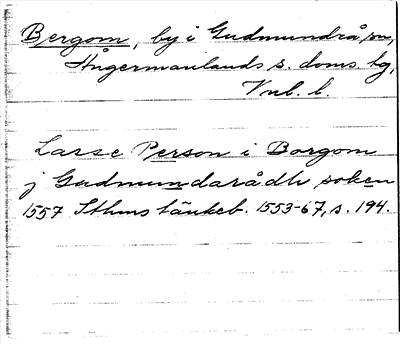 Bergom, by i Gudmundrå sn,
Ångermanlands s. doms. bg,
Vnl. l.
Lasse Person i Borgom
j Gudmundarådh soken
1557 Sthms tänkeb. 1553-67, s. 194.